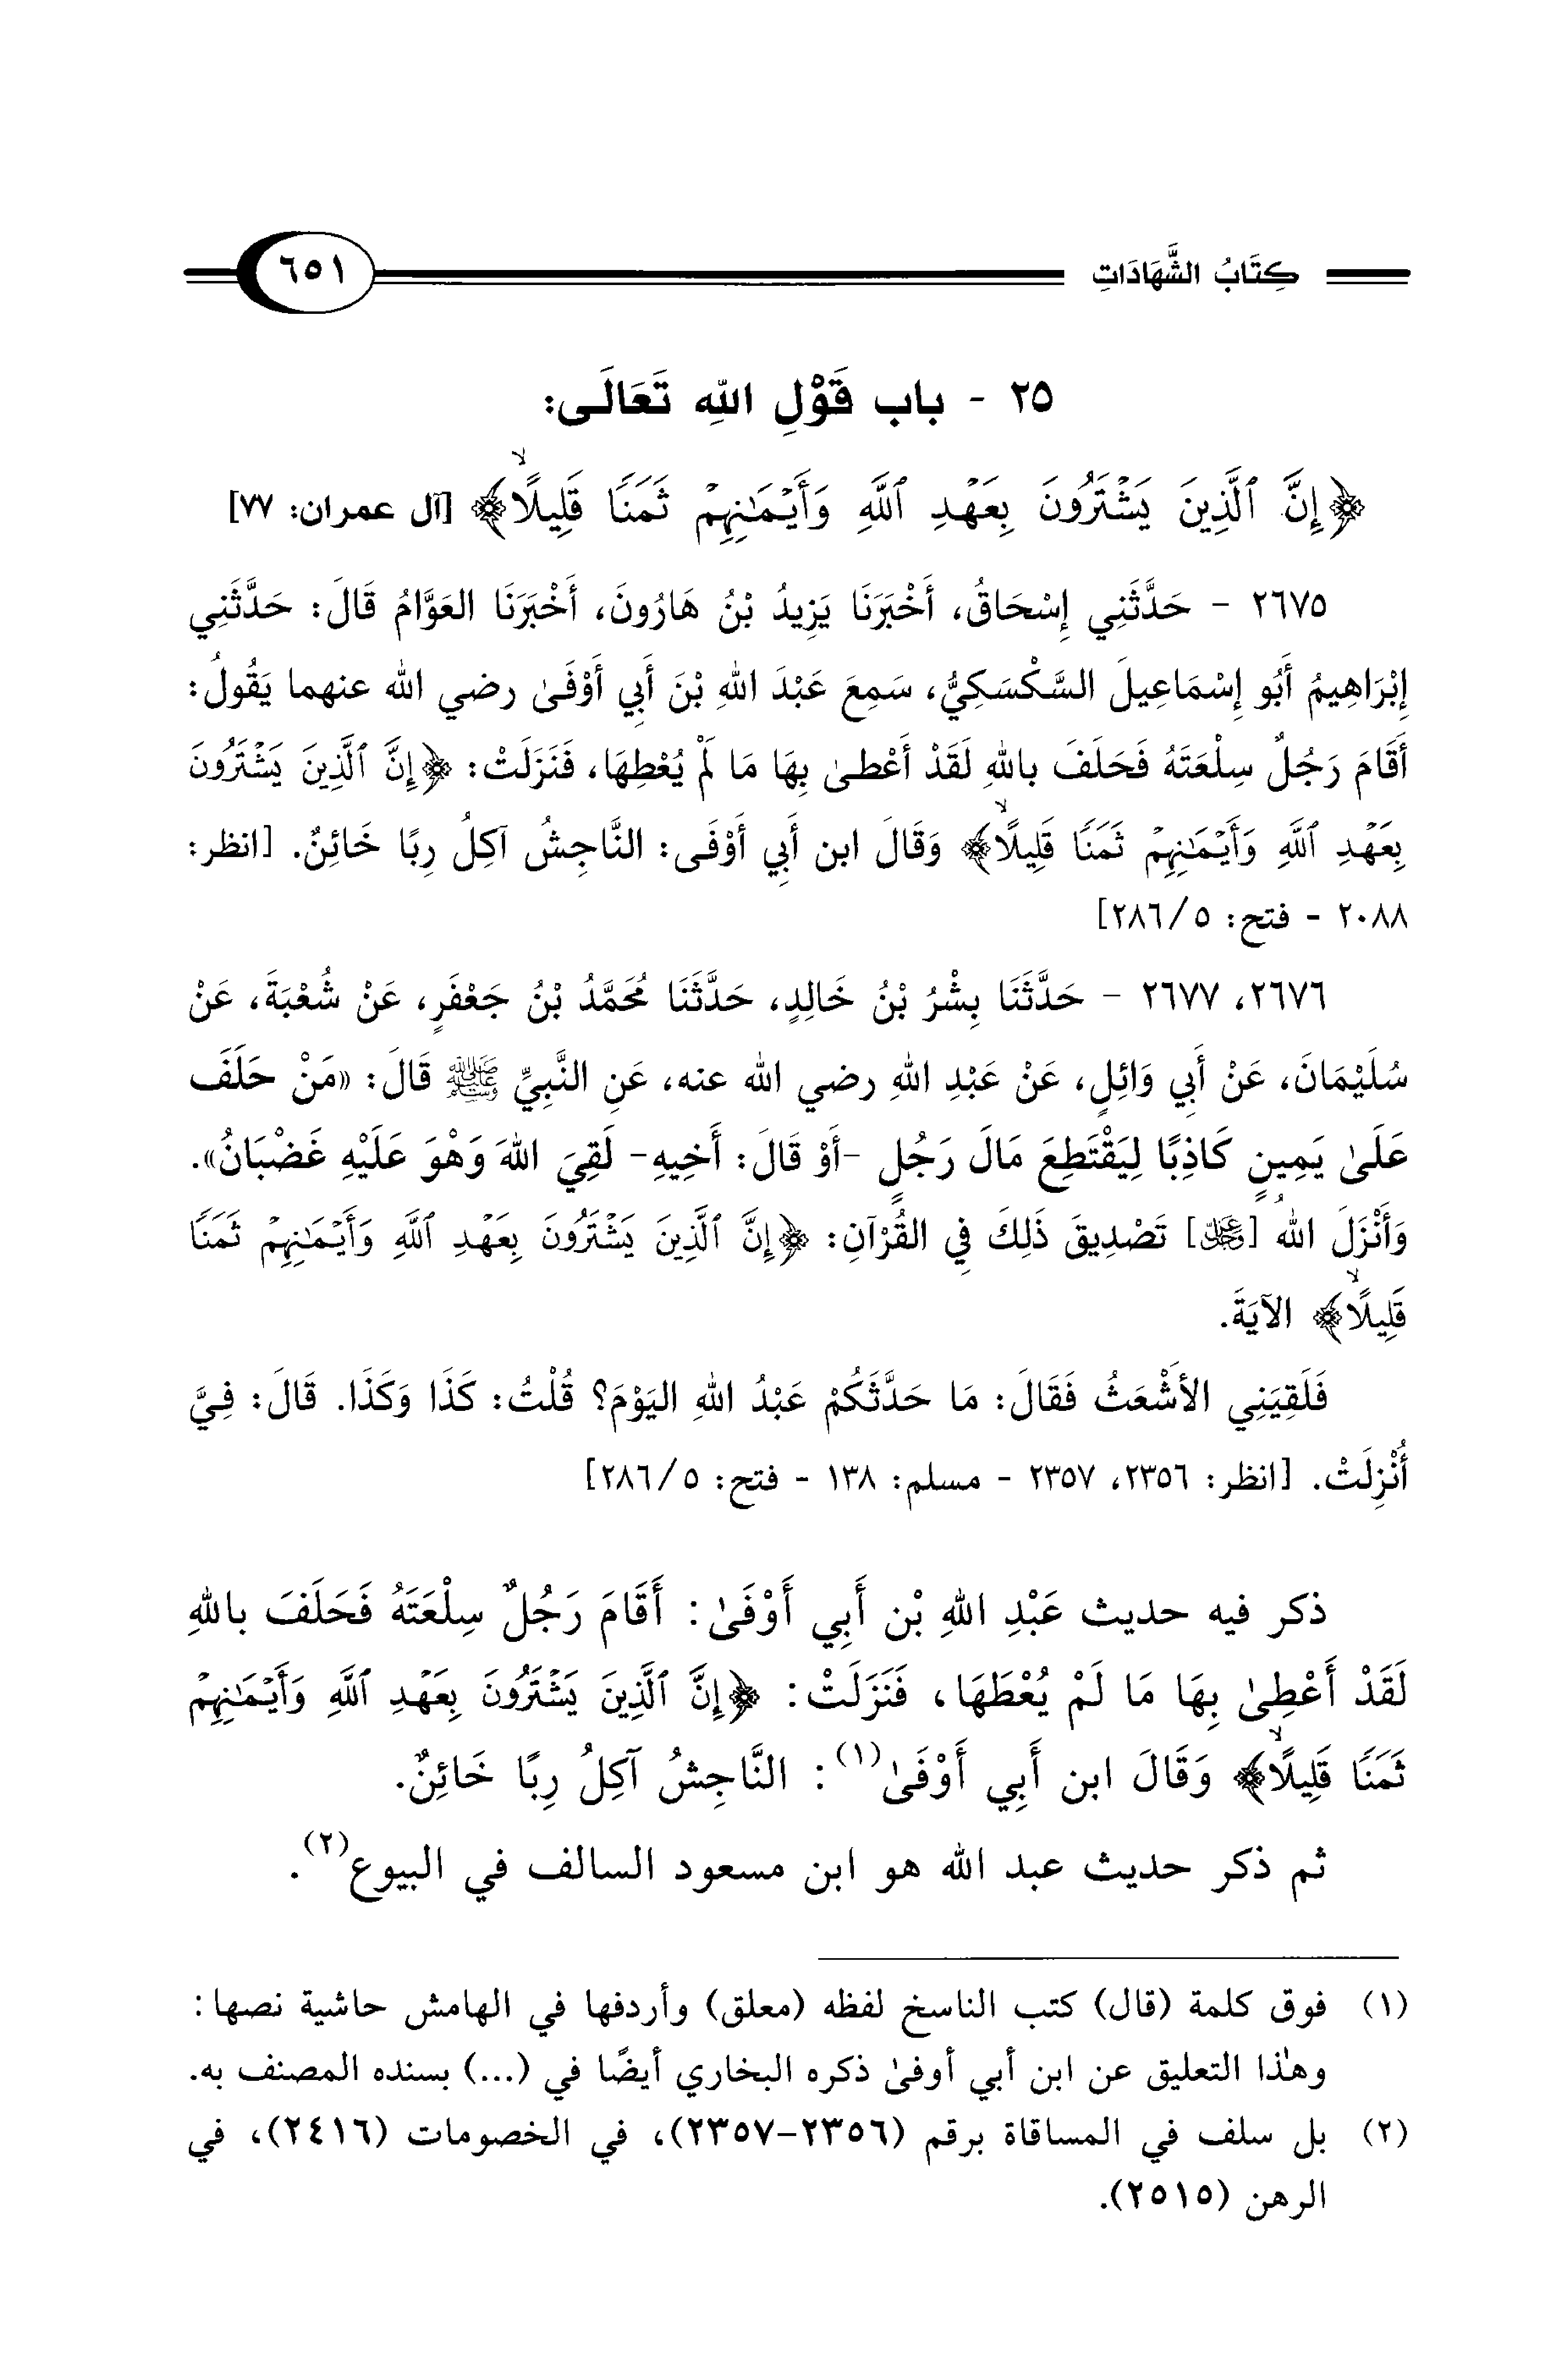 كِتَابُ الشَّهَادَاتِ ٦٥١
٢٥ - باب قَوْلِ اللهِ تَعَالَى:
﴿إِنَّ ٱلَّذِينَ يَشْتَرُونَ بِعَهْدِ ٱللَّهِ وَأَيْمَٰنِهِمْ ثَمَنًا قَلِيلًاۙ﴾ [آل عمران: ٧٧]
٢٦٧٥ - حَدَّثَنِي إِسْحَاقُ، أَخْبَرَنَا يَزِيدُ بْنُ هَارُونَ، أَخْبَرَنَا العَوَّامُ قَالَ: حَدَّثَنِي
إِبْرَاهِيمُ أَبُو إِسْمَاعِيلَ السَّكْسَكِيُّ، سَمِعَ عَبْدَ اللهِ بْنَ أَبِي أَوْفَىٰ رضي الله عنهما يَقُولُ:
أَقَامَ رَجُلٌ سِلْعَتَهُ فَحَلَفَ باللهِ لَقَدْ أَعْطىٰ بِهَا مَا لَمْ يُعْطِهَا، فَنَزَلَتْ: ﴿إِنَّ ٱلَّذِينَ يَشْتَرُونَ
بِعَهْدِ ٱللَّهِ وَأَيْمَٰنِهِمْ ثَمَنًا قَلِيلًاۙ﴾ وَقَالَ ابن أَبِي أَوْفَى: النَّاجِشُ آكِلُ رِبًا خَائِنٌ. [انظر:
٢٠٨٨ - فتح: ٥/٢٨٦]
٢٦٧٦، ٢٦٧٧ - حَدَّثَنَا بِشْرُ بْنُ خَالِدٍ، حَدَّثَنَا مُحَمَّدُ بْنُ جَعْفَرٍ، عَنْ شُعْبَةَ، عَنْ
سُلَيْمَانَ، عَنْ أَبِي وَائِلٍ، عَنْ عَبْدِ اللهِ رضي الله عنه، عَنِ النَّبِيِّ ﷺ قَالَ: «مَنْ حَلَفَ
عَلَىٰ يَمِينٍ كَاذِبًا لِيَقْتَطِعَ مَالَ رَجُلٍ -أَوْ قَالَ: أَخِيهِ- لَقِيَ اللهَ وَهْوَ عَلَيْهِ غَضْبَانُ».
وَأَنْزَلَ اللهُ [عَزَّ وَجَلَّ] تَصْدِيقَ ذَلِكَ فِي القُرْآنِ: ﴿إِنَّ ٱلَّذِينَ يَشْتَرُونَ بِعَهْدِ ٱللَّهِ وَأَيْمَٰنِهِمْ ثَمَنًا
قَلِيلًاۙ﴾ الآيَةَ.
فَلَقِيَنِي الأَشْعَثُ فَقَالَ: مَا حَدَّثَكُمْ عَبْدُ اللهِ اليَوْمَ؟ قُلْتُ: كَذَا وَكَذَا. قَالَ: فِيَّ
أُنْزِلَتْ. [انظر: ٢٣٥٦، ٢٣٥٧ - مسلم: ١٣٨ - فتح: ٥/٢٨٦]
ذكر فيه حديث عَبْدِ اللهِ بْن أَبِي أَوْفَىٰ: أَقَامَ رَجُلٌ سِلْعَتَهُ فَحَلَفَ باللهِ
لَقَدْ أَعْطِىٰ بِهَا مَا لَمْ يُعْطَهَا، فَنَزَلَتْ: ﴿إِنَّ ٱلَّذِينَ يَشْتَرُونَ بِعَهْدِ ٱللَّهِ وَأَيْمَٰنِهِمْ
ثَمَنًا قَلِيلًاۙ﴾ وَقَالَ ابن أَبِي أَوْفَىٰ(١): النَّاجِشُ آكِلُ رِبًا خَائِنٌ.
ثم ذكر حديث عبد الله هو ابن مسعود السالف في البيوع(٢).
(١) فوق كلمة (قال) كتب الناسخ لفظه (معلق) وأردفها في الهامش حاشية نصها:
وهٰذا التعليق عن ابن أبي أوفىٰ ذكره البخاري أيضًا في (...) بسنده المصنف به.
(٢) بل سلف في المساقاة برقم (٢٣٥٦-٢٣٥٧)، في الخصومات (٢٤١٦)، في
الرهن (٢٥١٥).